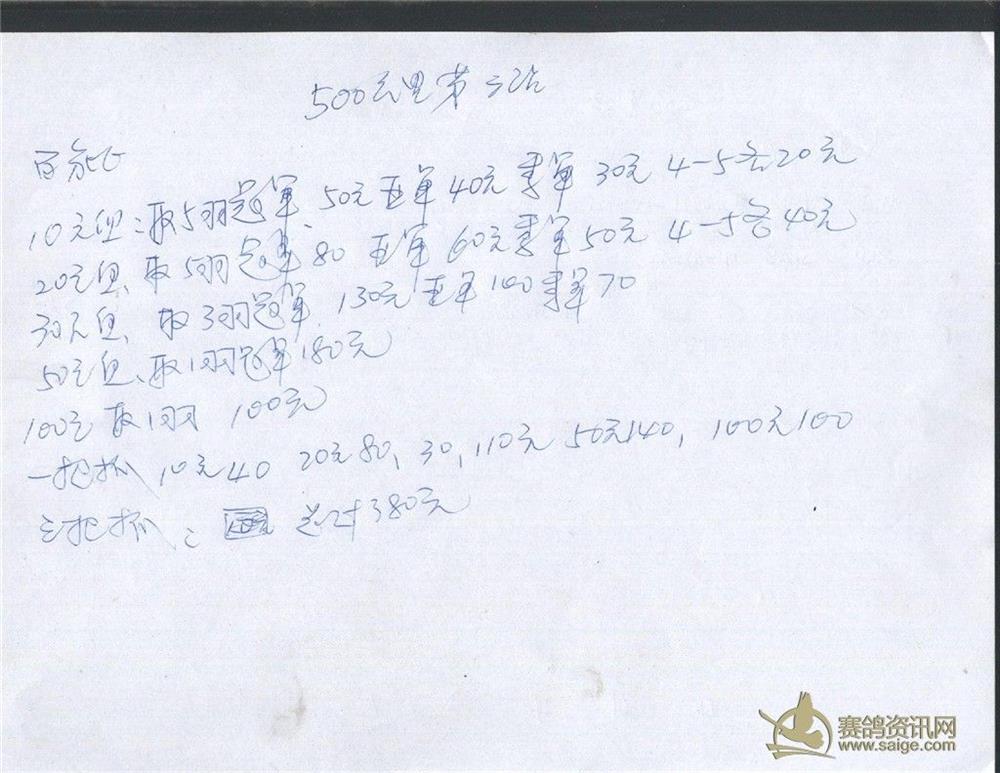 500公里第二站
10元组:取5羽冠军、50元亚军40元季军30元4-5各20元
20元组、取5羽冠军80亚军60元季军50元4-5各40元
30元组、取3羽冠军、130元亚军100季军70
50元组、取1羽冠军180元
100元取1羽 100元
一把抓 10元40 20元80, 30, 110元 50元140, 100元100
三把抓: 总计380元
赛鸽资讯网
www.saige.com